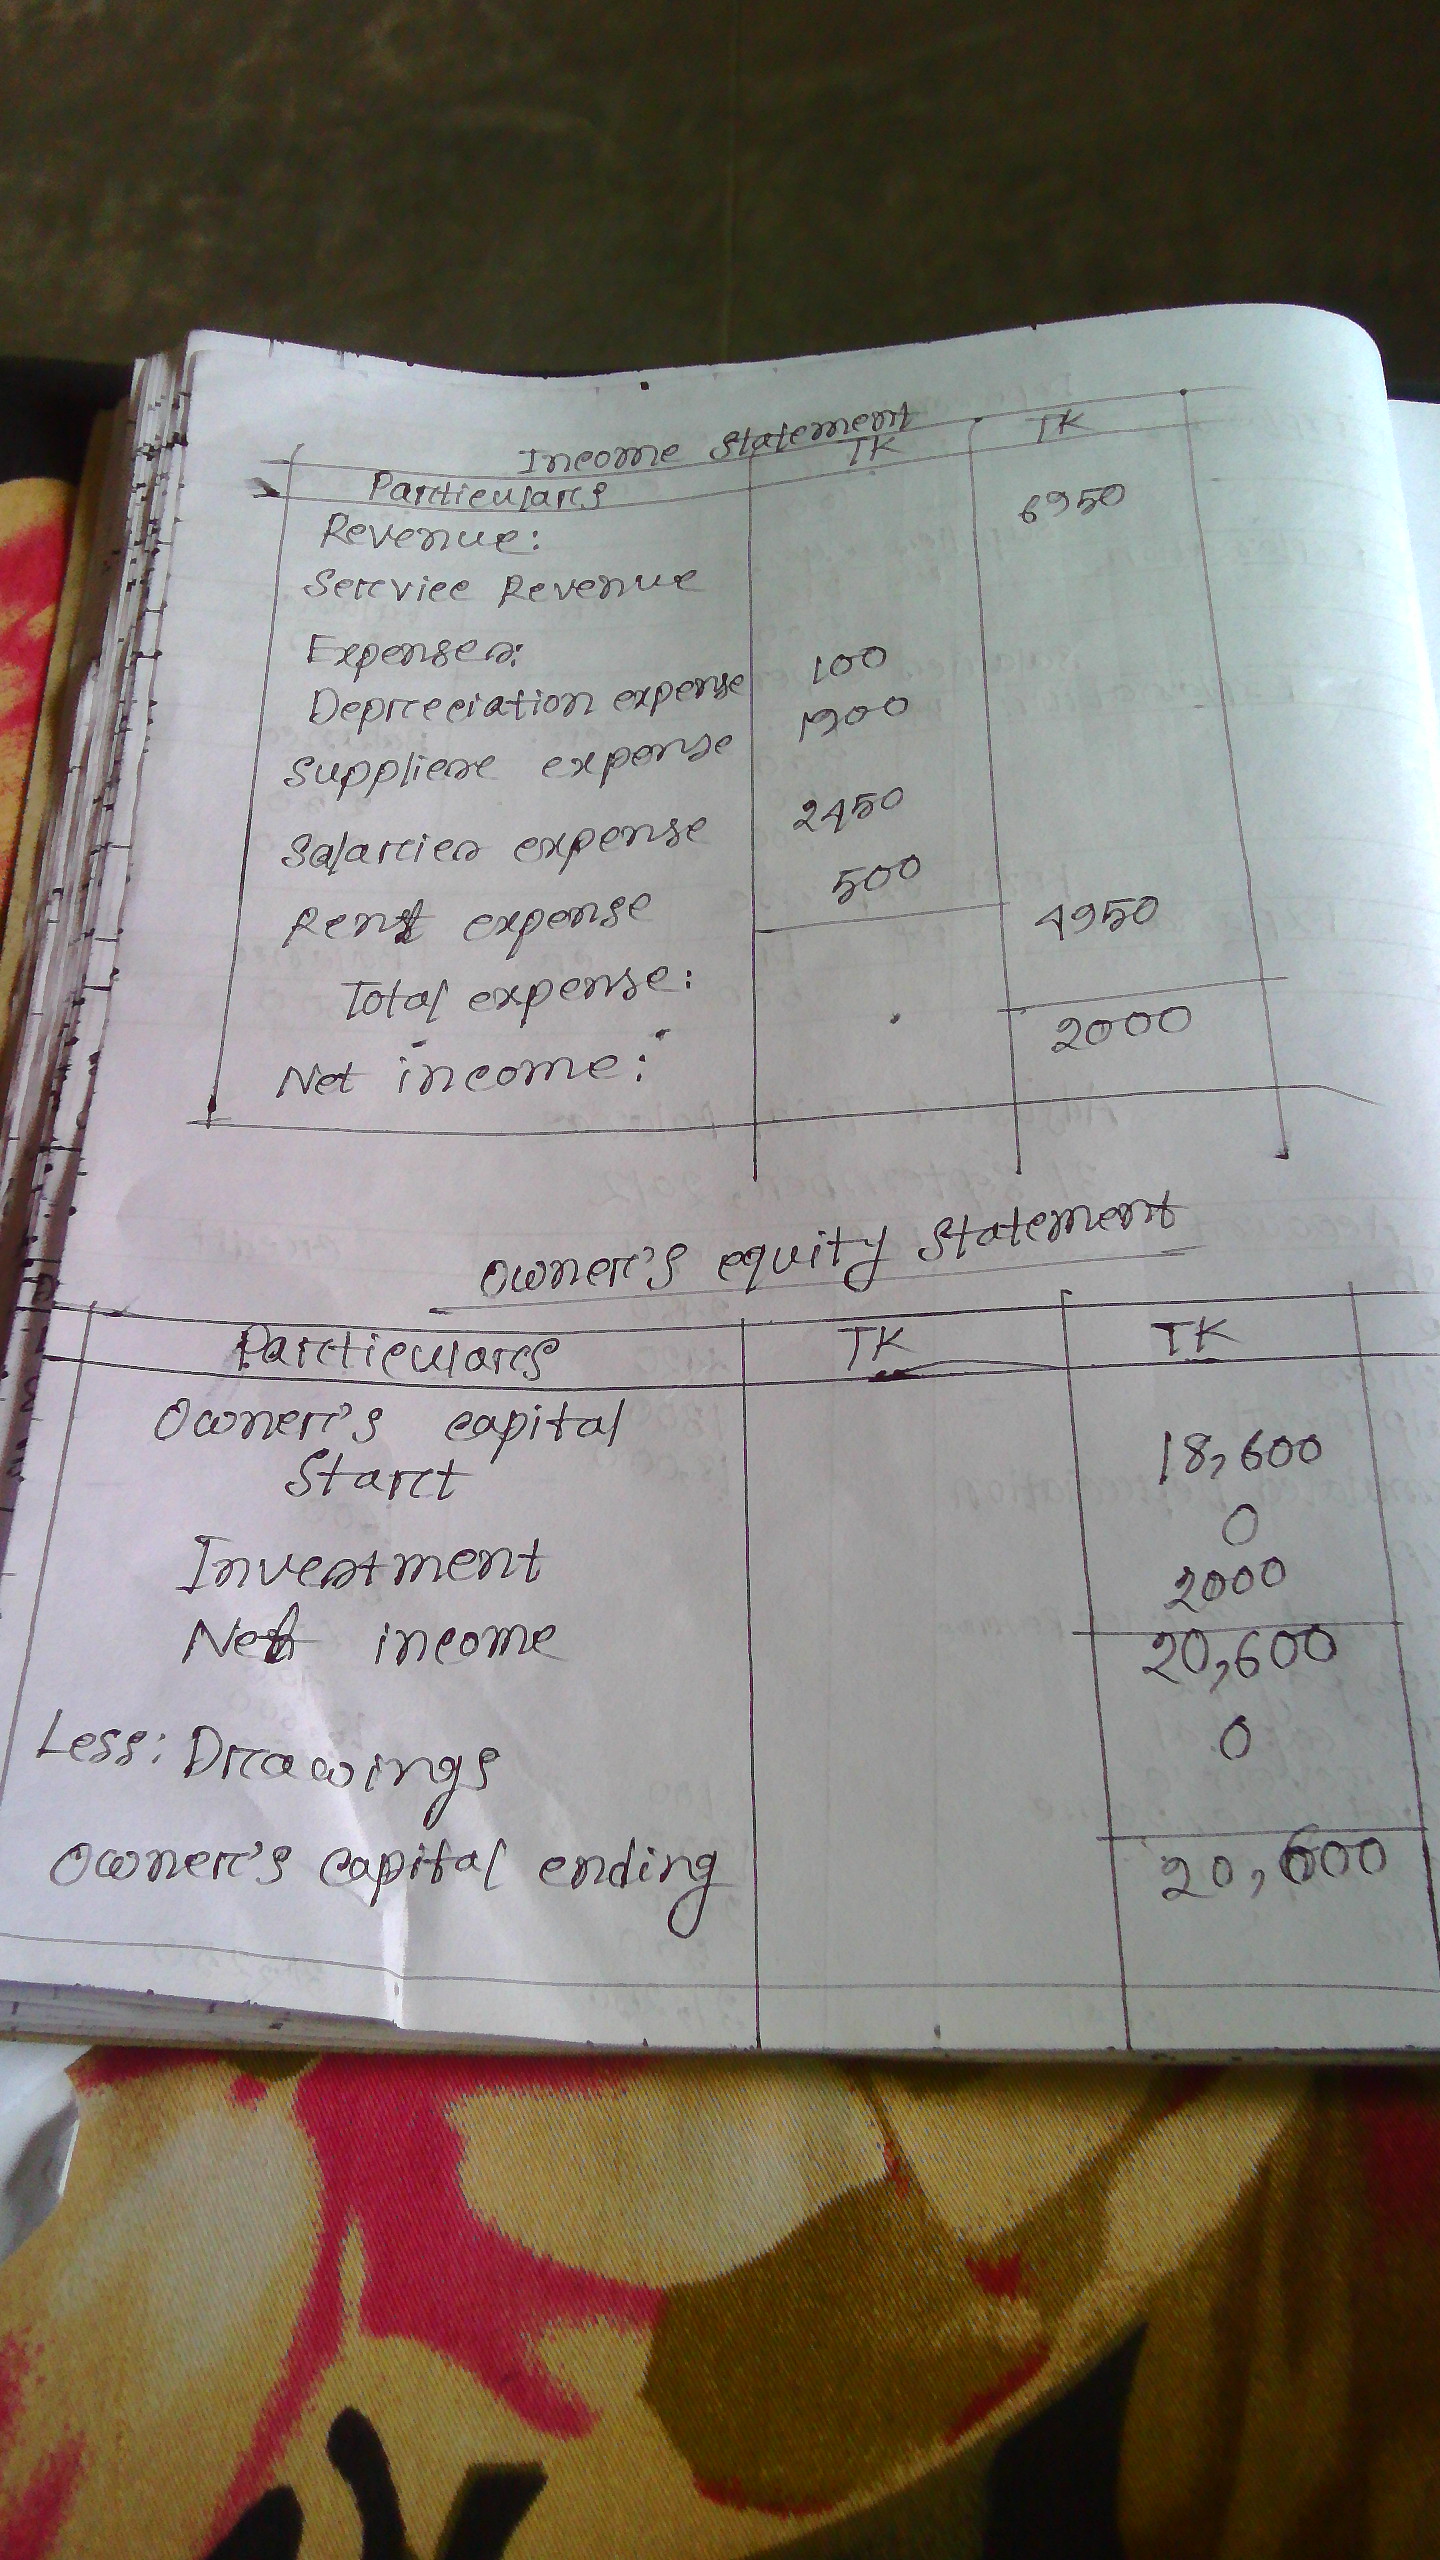 Income Statement
Particulars TK TK
Revenue: 6950
Service Revenue
Expenses:
Depreciation expense 100
Supplies expense 1900
Salaries expense 2450
Rent expense 500
Total expense: 4950
Net income: 2000
Owner's equity Statement
Particulars TK TK
Owner's capital
Start 18,600
Investment 0
Net income 2000
20,600
Less: Drawings 0
Owner's capital ending 20,600